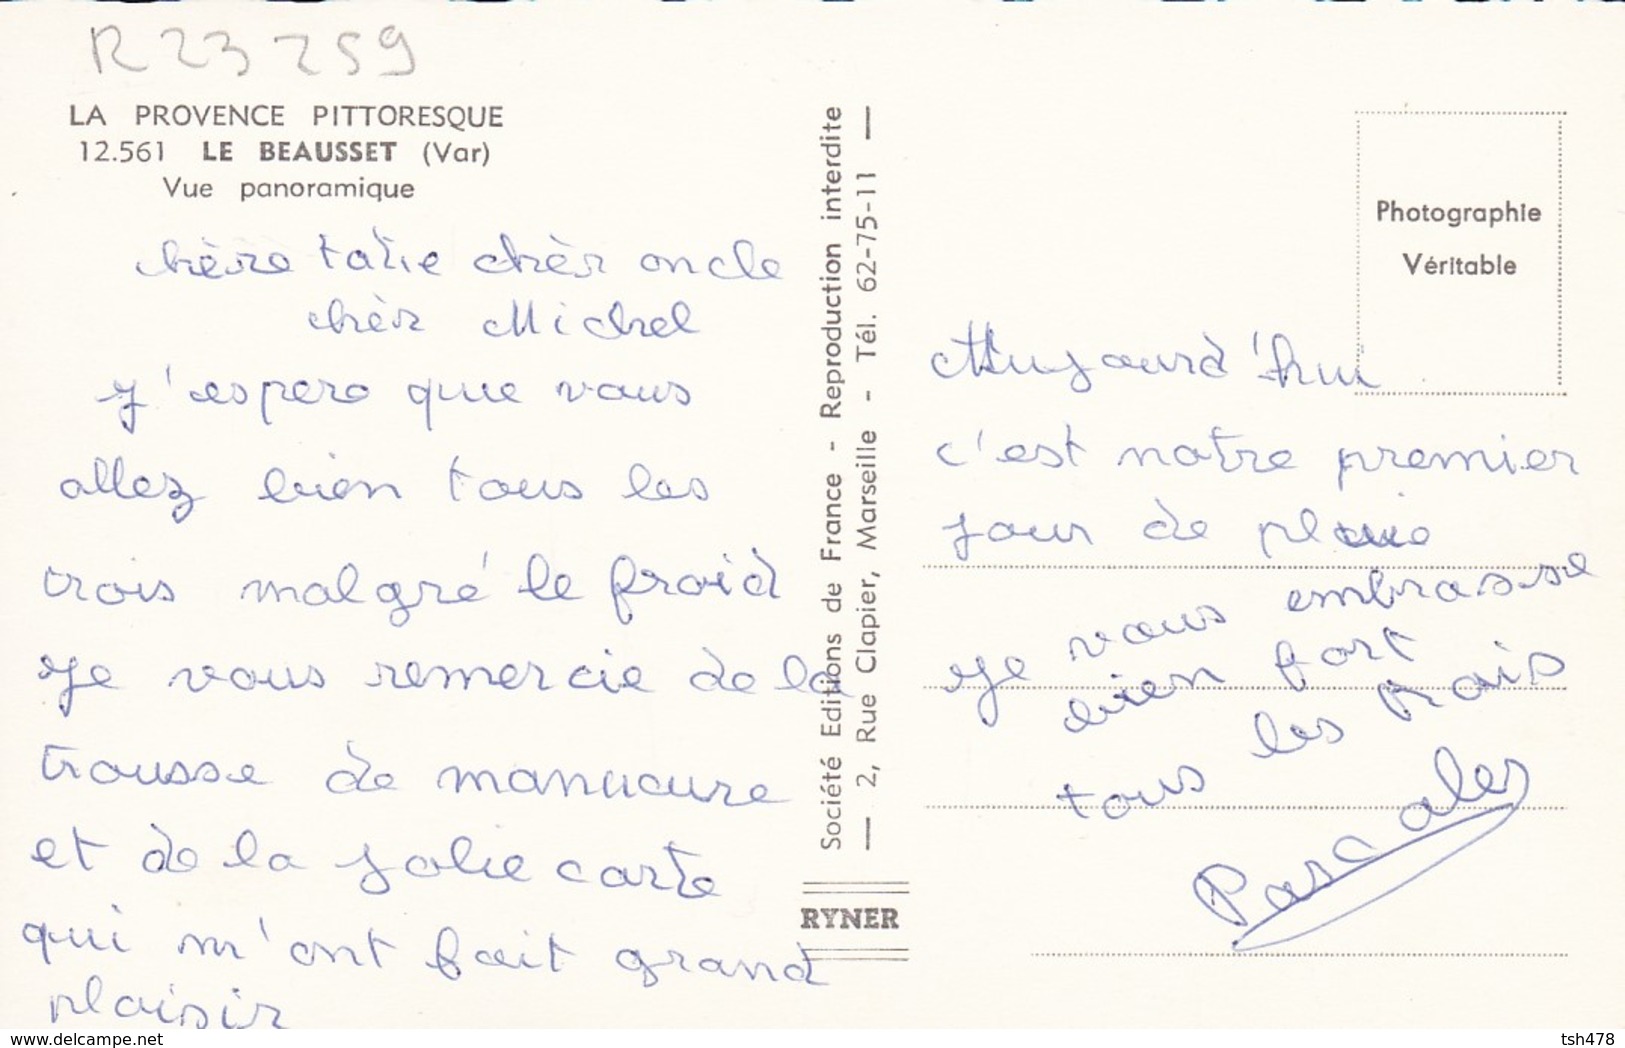 R23259
LA PROVENCE PITTORESQUE
12.561 LE BEAUSSET (Var)
Vue panoramique
chère tatie chèr oncle
chèr Michel
J'espere que vous
allez bien tous les
trois malgré le froid
Je vous remercie de la
trousse de manucure
et de la jolie carte
qui m'ont fait grand
plaisir
Société Editions de France - Reproduction interdite
— 2, Rue Clapier, Marseille - Tél. 62-75-11 —
RYNER
Photographie
Véritable
Aujourd'hui
c'est notre premier
jour de pluie
Je vous embrasse
bien fort
tous les trois
Pascales
www.delcampe.net
tsh478